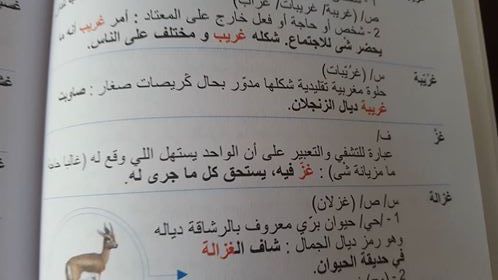 ص/ (غريبة/ غريبات/ غراب)
2- شخص أو حاجة أو فعل خارج على المعتاد : أمر غريب أنه ما
يحضر شي للاجتماع. شكله غريب و مختلف على الناس.
غرّيبة
س/ (غرّيبات)
حلوة مغربية تقليدية شكلها مدوّر بحال كريصات صغار : صاوبت
غريبة ديال الزنجلان.
غزّ
ف/
عبارة للتشفي والتعبير على أن الواحد يستهل اللي وقع له (غالبا
ما مزيانة شي) : غزّ فيه، يستحق كل ما جرى له.
غزالة
س/ ص/ (غزلان)
1- /حي/ حيوان برّي معروف بالرشاقة دياله
وهو رمز ديال الجمال : شاف الغزالة
في حديقة الحيوان.